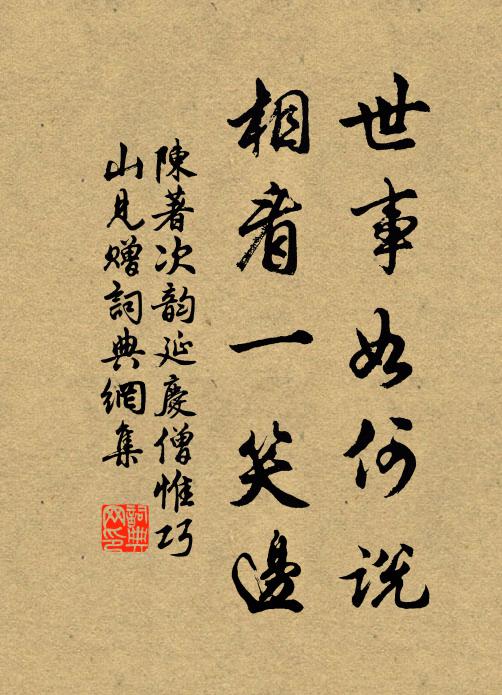 世事如何說
相看一笑邊
陳著次韵延慶僧惟巧
山見贈詞典網集
詞典网印